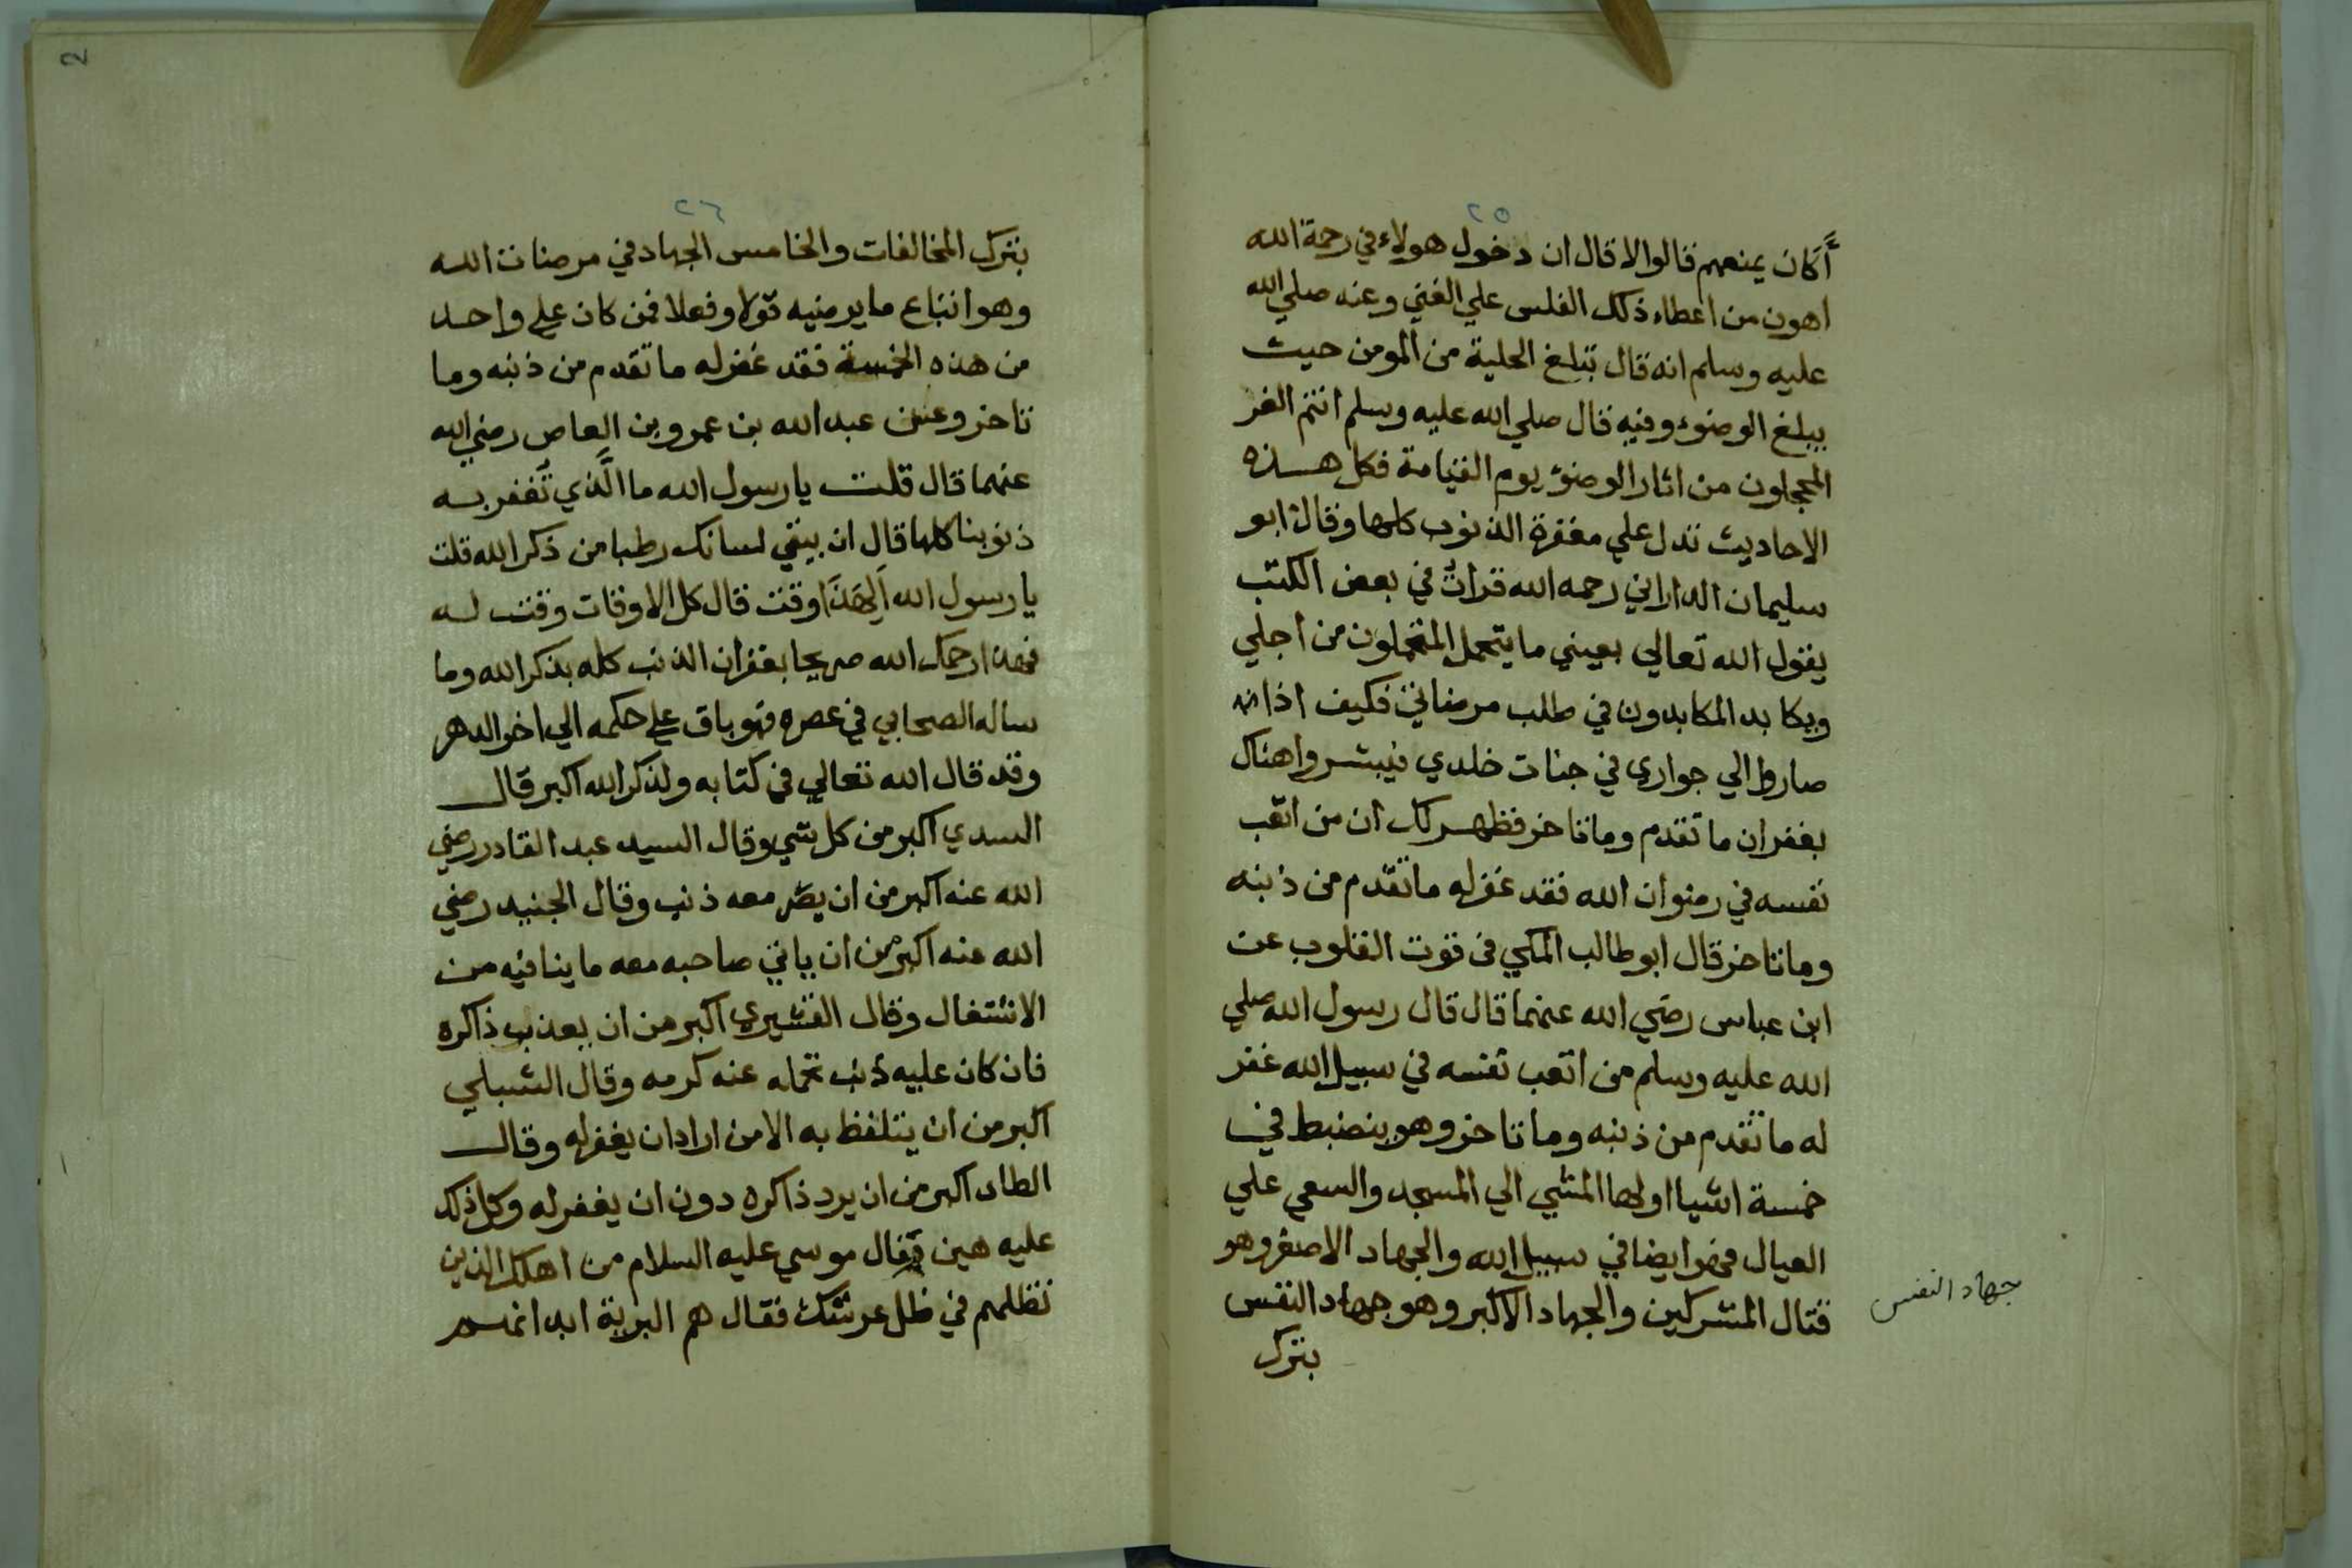 ٢٥
أَكَان يمنعهم قالوا لا قال ان دخول هولاء في رحمة الله
اهون من اعطاء ذلك الفلس علي الغني وعنه صلي الله
عليه وسلم انه قال تبلغ الحلية من المومن حيث
يبلغ الوضوء وفيه قال صلي الله عليه وسلم انتم الغر
المحجلون من اثار الوضؤ يوم القيامة فكل هذه
الاحاديث تدل علي مغفرة الذنوب كلها وقال ابو
سليمان الداراني رحمه الله قرات في بعض الكتب
يقول الله تعالي بعيني ما يتحمل المتحملون من اجلي
ويكابد المكابدون في طلب مرضاتي فكيف اذا
صاروا الي جواري في جنات خلدي فيبشروا هناك
بغفران ما تقدم وما تاخر فظهر لك ان من اتعب
نفسه في رضوان الله فقد غفر له ما تقدم من ذنبه
وما تاخر قال ابو طالب المكي في قوت القلوب عن
ابن عباس رضي الله عنهما قال قال رسول الله صلي
الله عليه وسلم من اتعب نفسه في سبيل الله غفر
له ما تقدم من ذنبه وما تاخر وهو ينضبط في
خمسة اشيا اولها المشي الي المسجد والسعي علي
العيال فهو ايضا في سبيل الله والجهاد الاصغر وهو
قتال المشركين والجهاد الاكبر وهو جهاد النفس
جهاد النفس
بترك
٢٦
بترك المخالفات والخامس الجهاد في مرضات الله
وهو اتباع ما يرضيه قولا وفعلا فمن كان علي واحد
من هذه الخمسة فقد غفر له ما تقدم من ذنبه وما
تاخر وعن عبد الله بن عمرو بن العاص رضي الله
عنهما قال قلت يا رسول الله ما الَّذي تُغفر به
ذنوبنا كلها قال ان يبقي لسانك رطبا من ذكر الله قلت
يا رسول الله اَلِهَذَا وقت قال كل الاوقات وقت له
فهذا رحمك الله صريحا بغفران الذنب كله بذكر الله وما
ساله الصحابي في عصره فهو باق علي حكمه الي اخر الدهر
وقد قال الله تعالي في كتابه ولذكر الله اكبر قال
السدي اكبر من كل شي وقال السيد عبد القادر رضي
الله عنه اكبر من ان يضر معه ذنب وقال الجنيد رضي
الله عنه اكبر من ان ياتي صاحبه معه ما ينافيه من
الاشتغال وقال القشيري اكبر من ان يعذب ذاكره
فان كان عليه ذنب تحمله عنه كرمه وقال الشبلي
اكبر من ان يتلفظ به الا من اراد ان يغفر له وقال
اكبر من ان يرد ذاكره دون ان يغفر له وكل ذلك
عليه هين فقال موسي عليه السلام من اهلك الذين
تظلهم في ظل عرشك فقال هم البرية
2